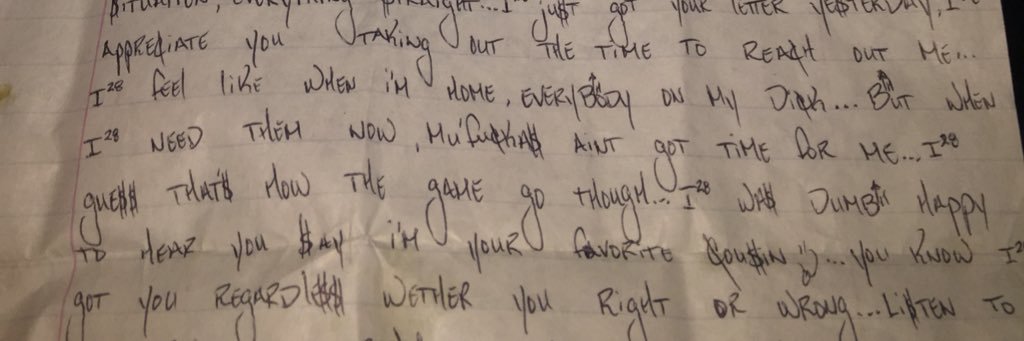 SITUATION, EVERYTHING $TRAIGHT... I²⁸ ju$t got YOUR lETTER YE$TERDAY, I²⁸
APPRE¢iATE YOU TAKiNG OUT THE TiME TO REA¢H OUT ME...
I²⁸ fEEl liKE WHEN i'M HOME, EVERYBODY ON MY Di¢k... BUT WHEN
I²⁸ NEED THEM NOW, MU'fu¢kA$ AiNT got TiME foR ME... I²⁸
guE$$ THAT'$ HOW THE gAME go THougH... I²⁸ WA$ DUMB HAppy
TO HEAR you $Ay i'M youR fAvoRiTE ¢ou$iN :)... you KNow I²⁸
goT you REgARDlE$$ WETHER you RigHT oR wRoNg... Li$TEN TO